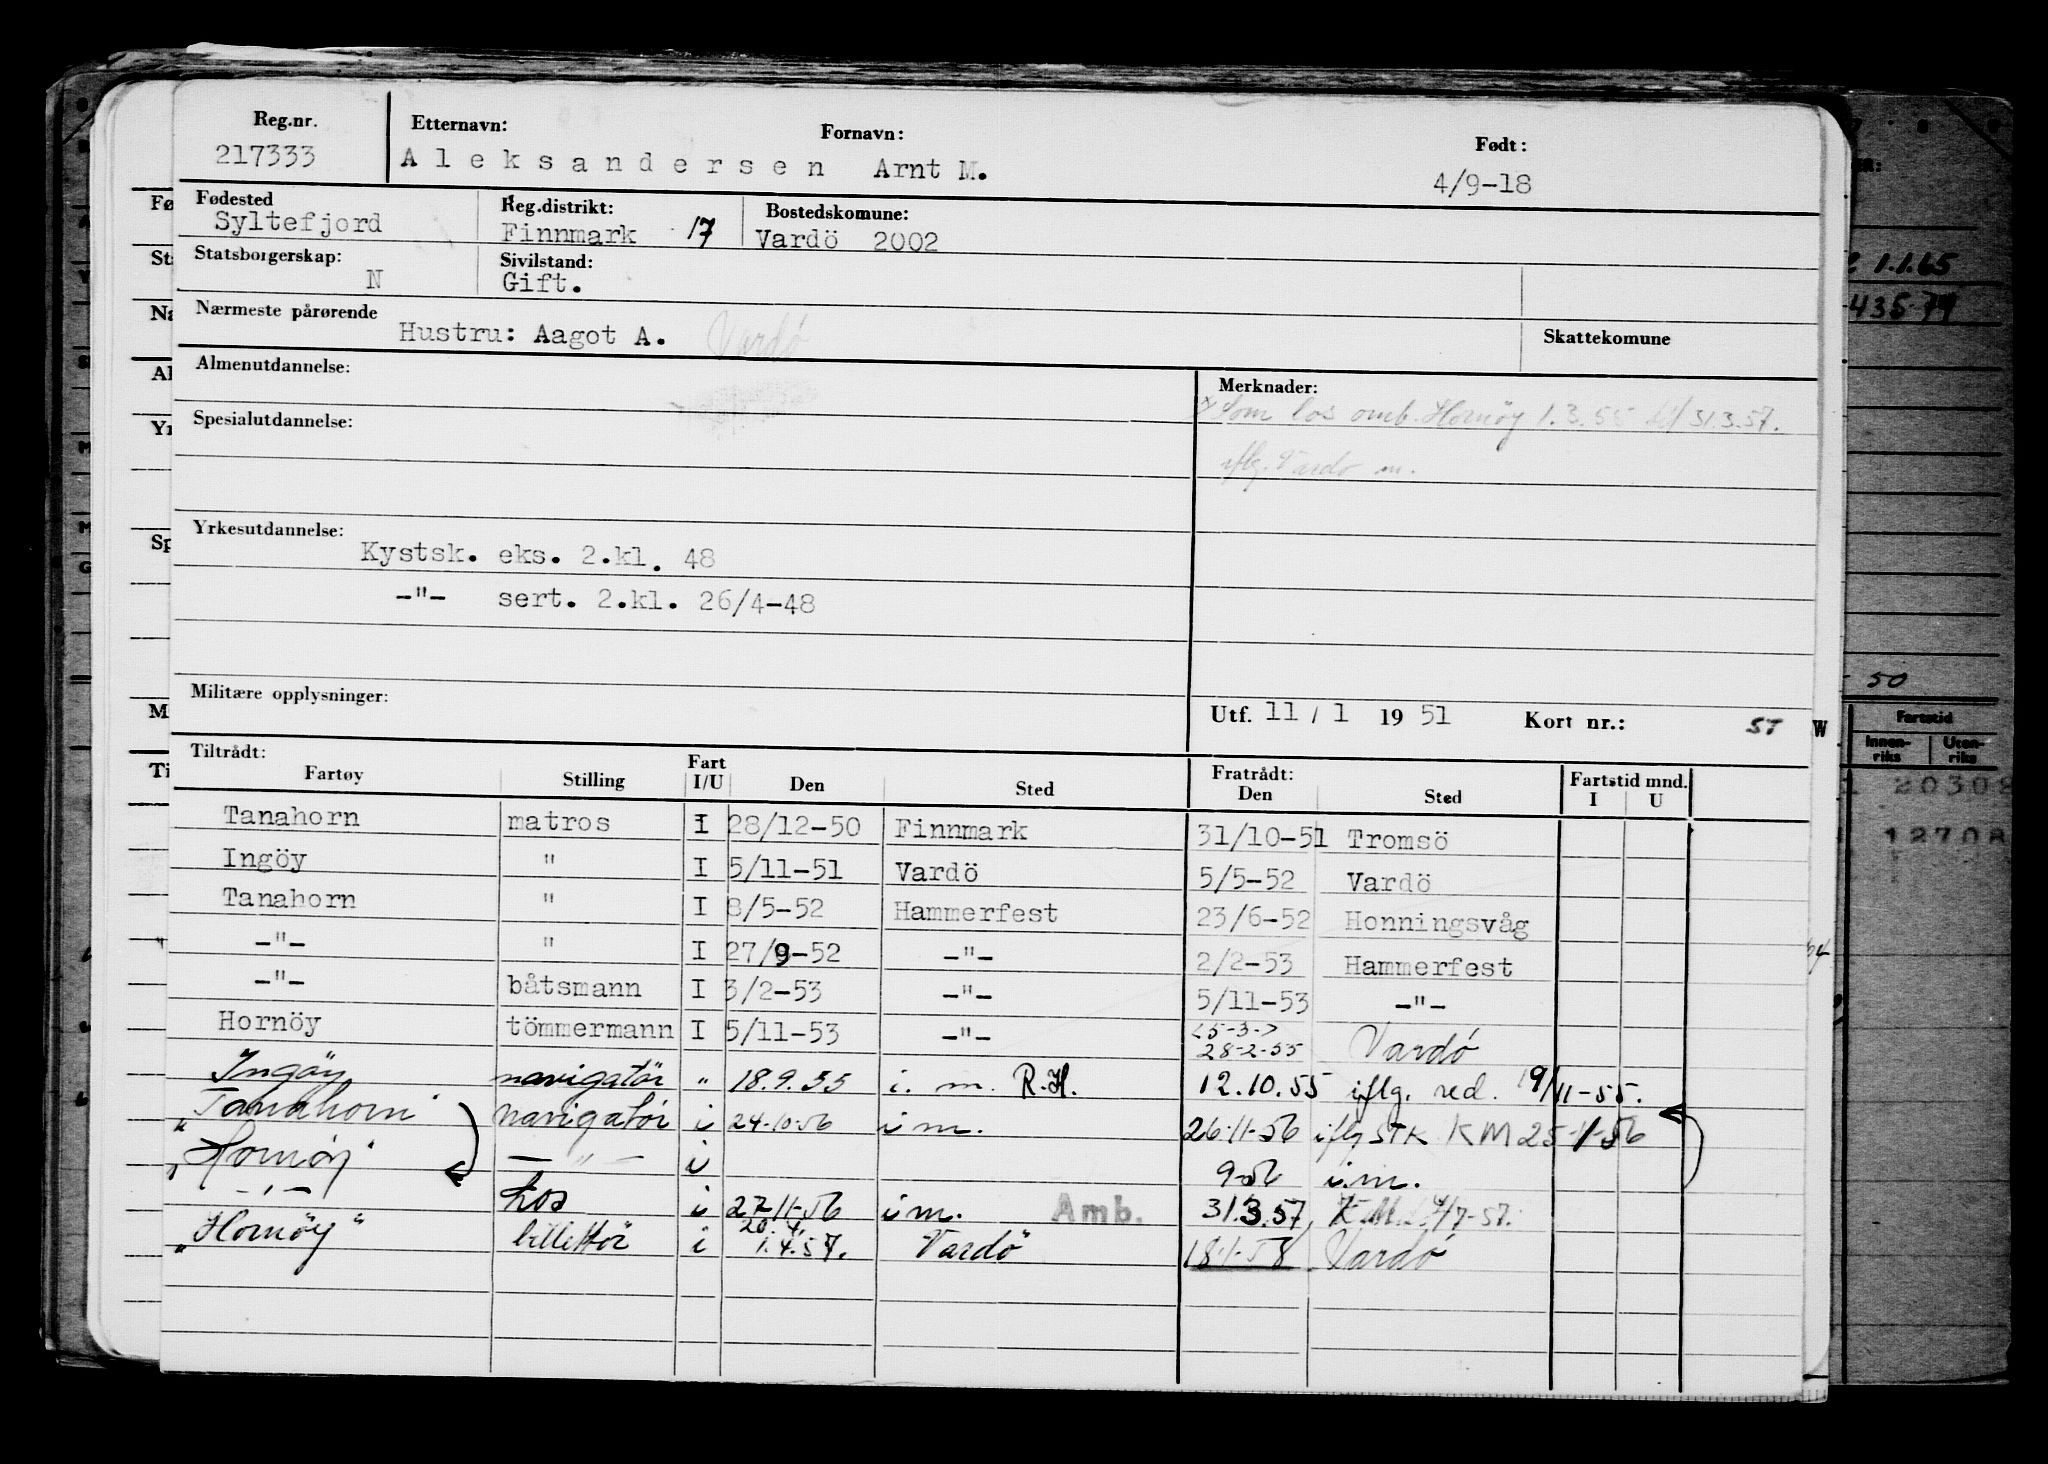 Reg.nr. Etternavn: Fornavn: Født:
217333 Aleksandersen Arnt M. 4/9-18
Fødested Reg.distrikt: Bostedskomune:
Syltefjord Finnmark 17 Vardö 2002
Statsborgerskap: Sivilstand:
N Gift.
Nærmeste pårørende
Hustru: Aagot A. Vardø Skattekomune
Almenutdannelse: Merknader:
Som los omb. Hornöy 1.3.55 til 31.3.57.
Spesialutdannelse:
iflg. Vardø m.
Yrkesutdannelse:
Kystsk. eks. 2.kl. 48
-"- sert. 2.kl. 26/4-48
Militære opplysninger:
Utf. 11 / 1 19 51 Kort nr.: W
Tiltrådt: Fart Fratrådt: Fartstid mnd.
Fartøy Stilling I/U Den Sted Den Sted I U
Tanahorn matros I 28/12-50 Finnmark 31/10-51 Tromsö
Ingöy " I 5/11-51 Vardö 5/5-52 Vardö
Tanahorn " I 8/5-52 Hammerfest 23/6-52 Honningsvåg
-"- " I 27/9-52 -"- 2/2-53 Hammerfest
-"- båtsmann I 3/2-53 -"- 5/11-53 -"-
Hornöy tömmermann I 5/11-53 -"- <5-3-> 28-2-55 Vardö
Ingöy navigatör " 18.9.55 i. m. R.H. 12.10.55 iflg. red. 19/11-55.
"Tanahorn" navigatör i 24-10-56 i m. 26-11-56 iflg STK KM 25-1-56
"Hornöy" -"- i 9-56 i.m.
-"- Los i 27-11-56 i m. Amb. 31.3.57, K.M. 4/7-57.
"Hornöy" billettör i 20/4 1.4.57. Vardö 18-1-58 Vardö
1.1.65
435-74
50
Fartstid
Innen-riks Uten-riks
20308
12708